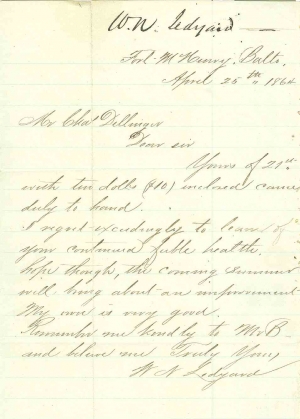 W. N. Ledyard
Fort McHenry, Balto.
April 25th 1864
Mr Chas Dellinger
Dear sir
Yours of 21st
with ten dolls ($10) inclosed came
duly to hand.
I regret exceedingly to learn of
your continued feeble health.
hope though, the coming summer
will bring about an improvement
My own is very good.
Remember me kindly to Mrs B
and believe me Truly Yours,
W N Ledyard